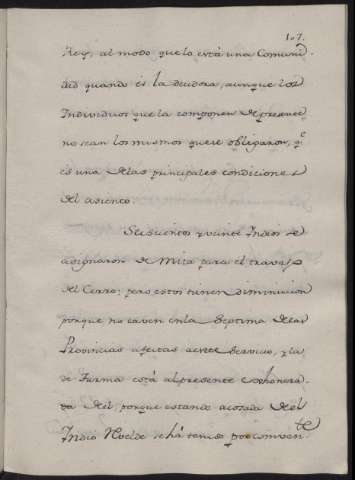 107.
Rey, al modo que lo está una Comuni-
dad quando és la deudora, aunque los
Individuos que la componen de presente
no sean los mismos que se obligaron, q.e
és una de las principales condiciones
del asiento.
Seiscientos y veinte Indios se
asignaron de Mita para el travajo
del Cerro: pero estos tienen diminucion
porque no caven en la septima de las
Provincias afectas a este servicio, y la
de Tarma está al presente exhonera-
da del, porque estando acosada del
Indio Revelde se há tenido por conven.te